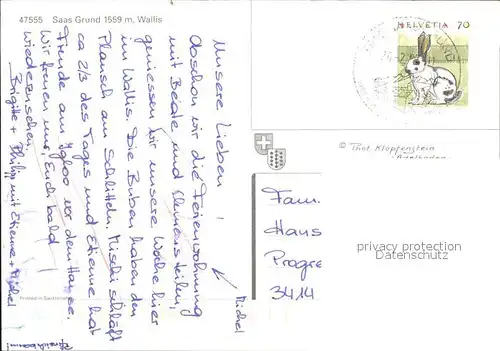 47555 Saas Grund 1559 m, Wallis
Unsere Lieben!
Obschon wir die Ferienwohnung
mit Beate und Clemens teilen,
geniessen wir unsere Woche hier
im Wallis. Die Buben haben den
Plausch am Schlitteln. Michi schläft
ca 2/3 des Tages und Etienne hat
Freude am Ygloo vor dem Hause.
Wir freuen uns, Euch bald
wiederzusehen.
Brigitte + Philip mit Etienne + Michel
Michel
HELVETIA 70
© Phot. Klopfenstein
Adelboden
Fam.
Hans
Progre
3414
privacy protection
Datenschutz
Printed in Switzerland